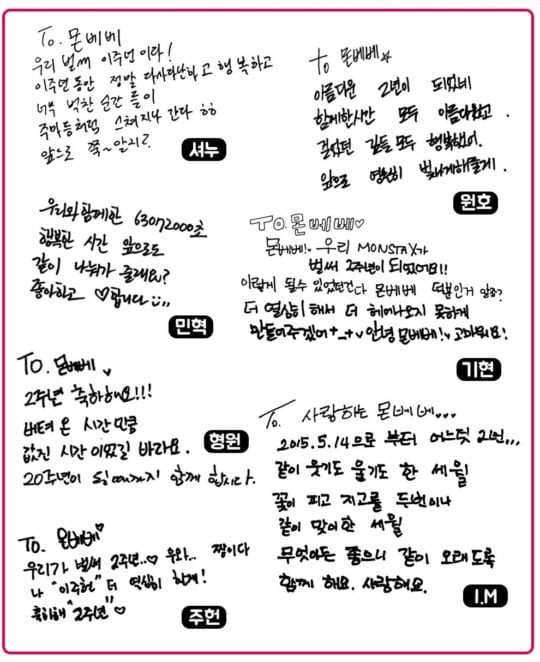 To. 몬베베
우리 벌써 이주년 이다!
이주년동안 정말 다사다난하고 행복하고
너무 벅찬 순간 들이
주마등처럼 스쳐지나 간다 ㅎㅎ
앞으로 쭉~알지?
셔누
to 몬베베☆
아름다운 2년이 되었네
함께한시간 모두 아름다웠고.
걸었던 길들 모두 행복했어.
앞으로 영원히 빛나게해줄게.
원호
우리와함께한 63072000초
행복한 시간 앞으로도
같이 나눠가 줄래요?
좋아하고 ♡합니다
민혁
To. 몬베베♡
몬베베! 우리 MONSTAX가
벌써 2주년이 되었어요!!
이렇게 될수 있었던건 다 몬베베 덕분인거 알죠?
더 열심히 해서 더 헤어나오지 못하게
만들어주겠어+_+♥안녕 몬베베!♥고마워요!
기현
To. 몬베베♥
2주년 축하해요!!!
버텨 온 시간 만큼
값진 시간 이었길 바라요.
20주년이 될때까지 함께 합시다.
형원
To. 사랑하는 몬베베...
2015.5.14으로 부터 어느덧 2년...
같이 웃기도 울기도 한 세월
꽃이 피고 지고를 두번이나
같이 맞이한 세월
무엇이든 좋으니 같이 오래도록
함께 해요. 사랑해요.
I.M
To. 몬베베♥
우리가 벌써 2주년..♡ 우와.. 짱이다
나 "이주헌" 더 열심히 할게!
축하해 "2주년"♡
주헌